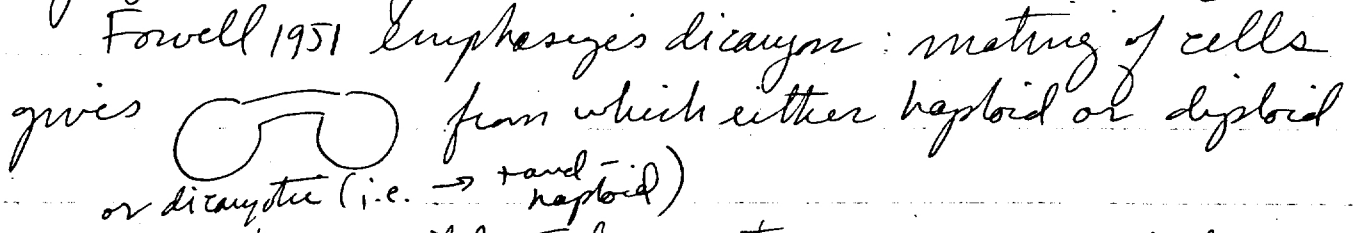 Fowell 1951 emphasizes dicaryon : mating of cells
gives from which either haploid or diploid
or dicaryotic (i.e. → + and - haploid)